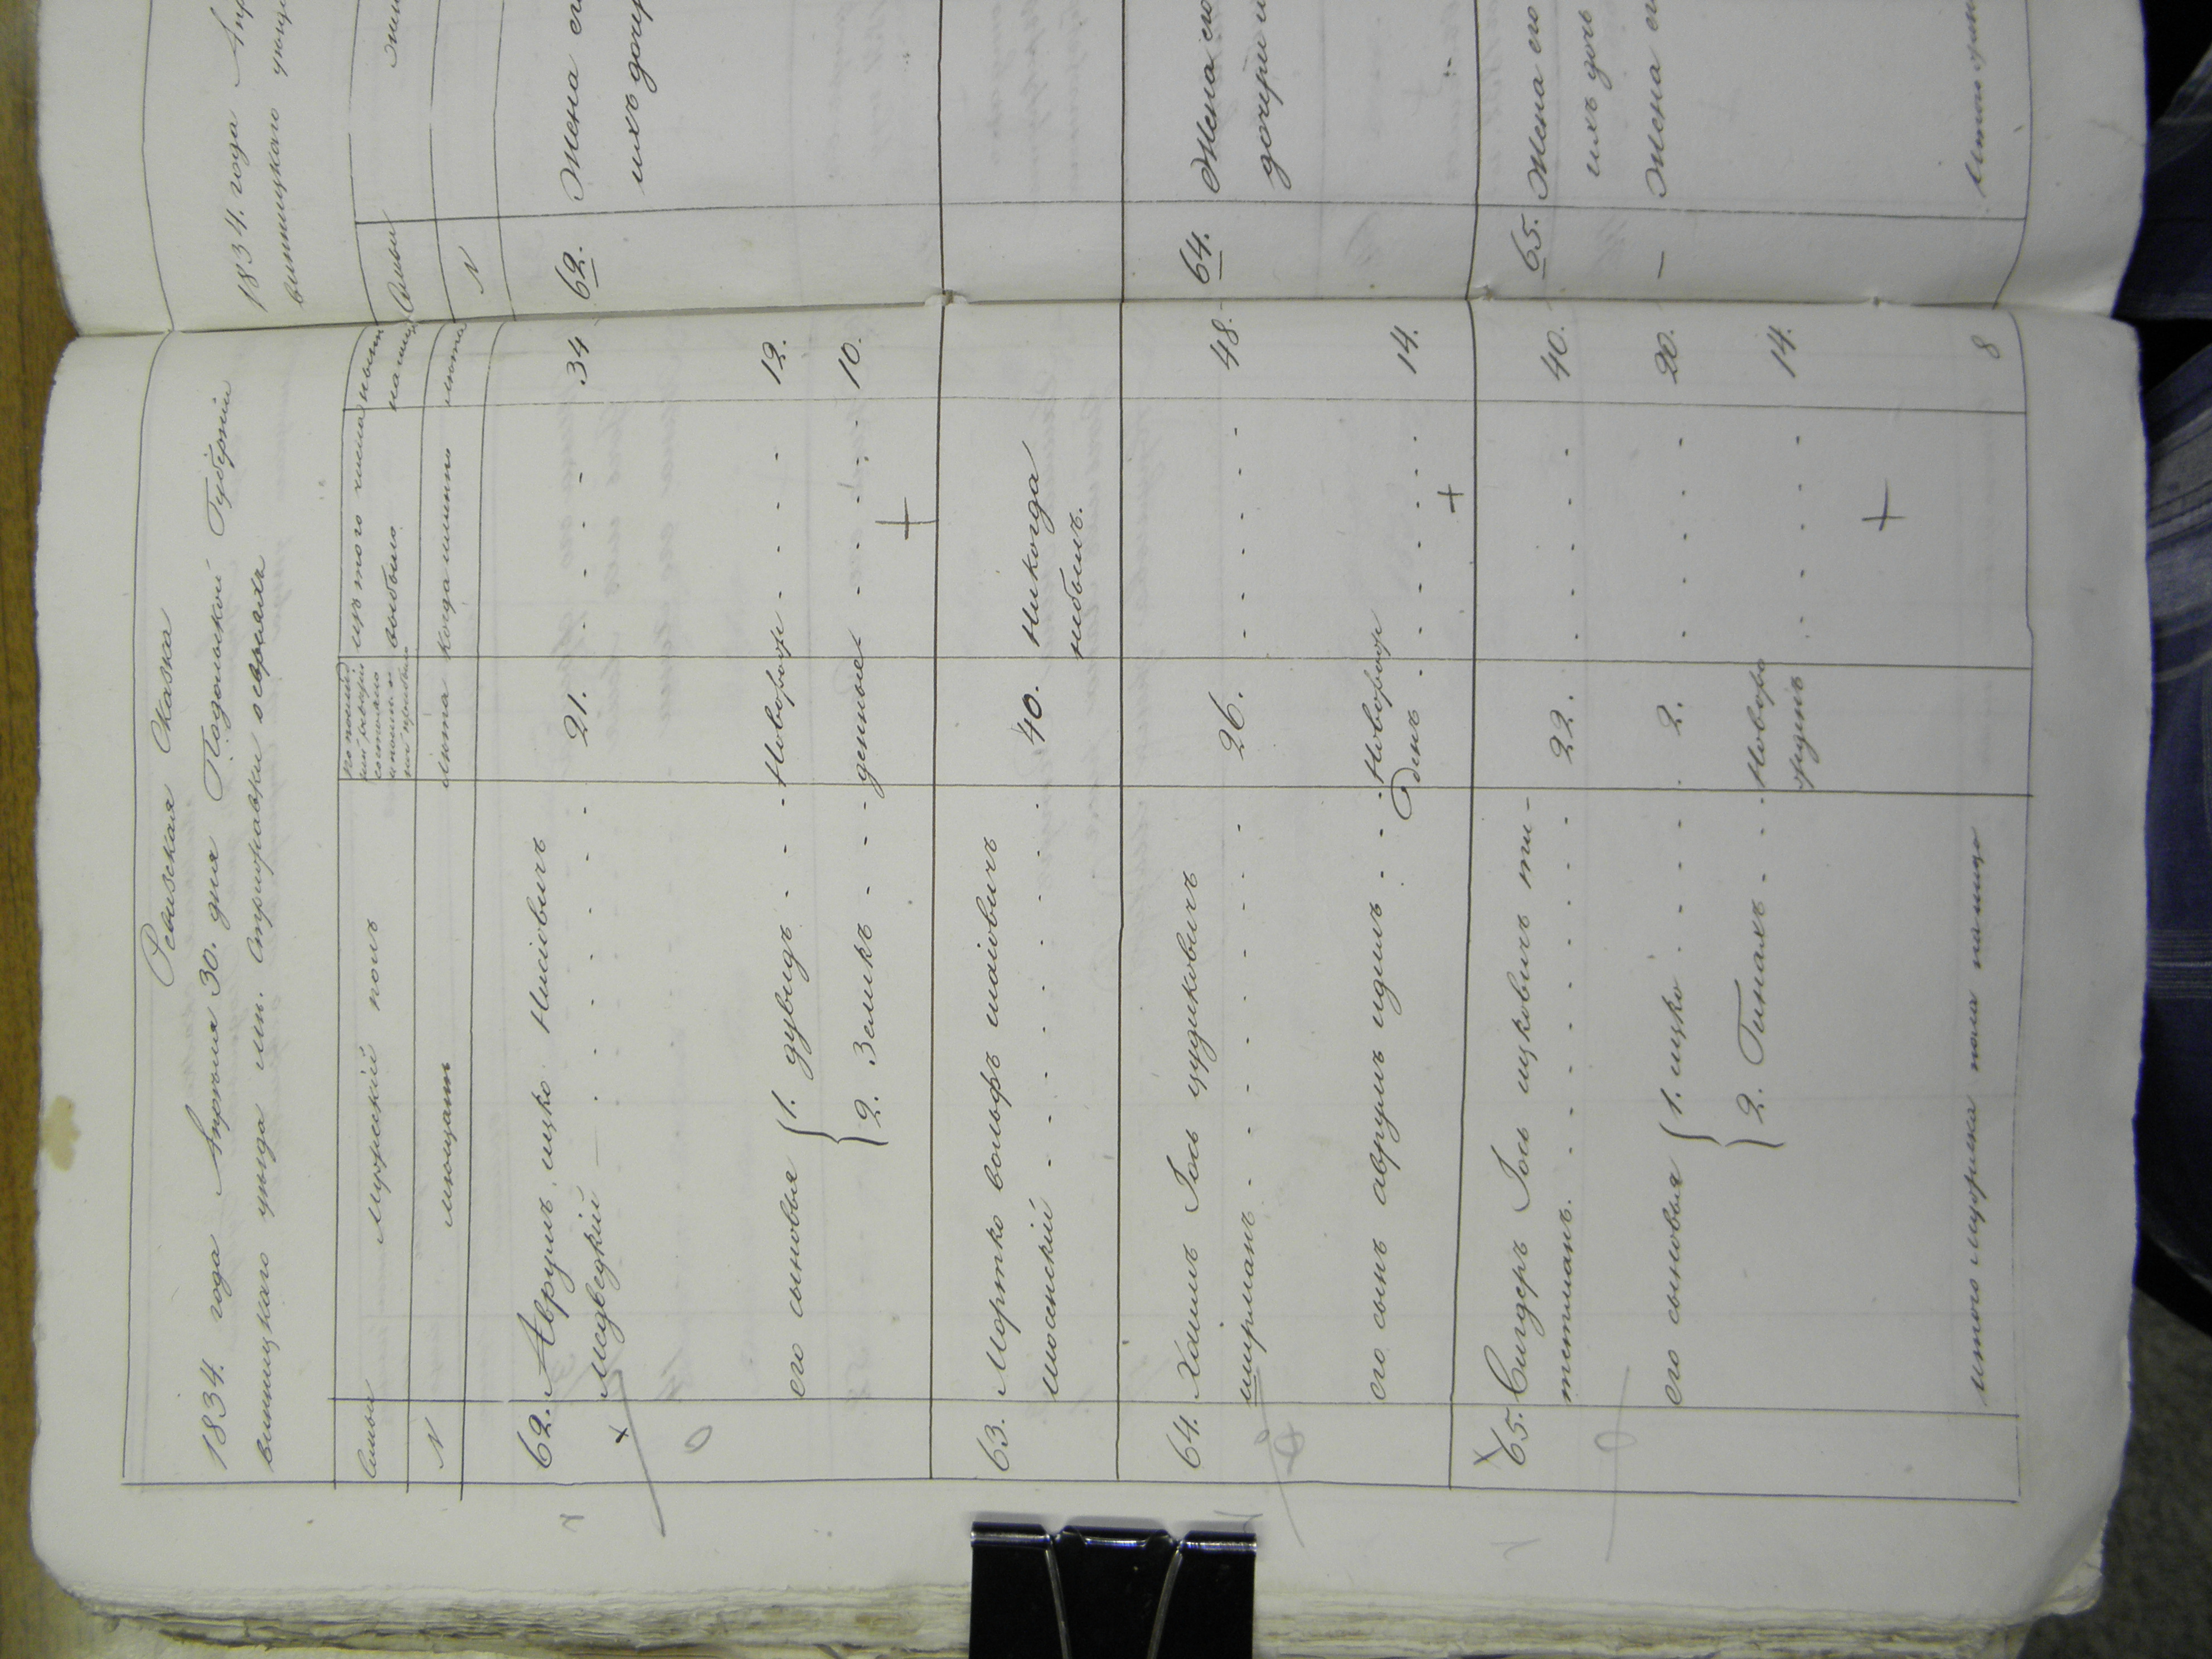 Ревизская Сказка
1834. года Апреля 30. дня Подольской Губернiи
винницкого уезда мч. Стрижавки о евреяхъ
Семьи
Мужеский полъ
По послед-
ней ревизiи
состояло
и после
оной прибыло
изъ того числа
выбыло
ныне
на лицо
N
мещант
лета
когда именно
лета
62. Аврумъ ицко Нисiовичъ
Медвецкiй 21. 34
его сыновья 1. дувидъ Новорож 12.
2. Зеликъ денные 10.
63. Мортко вольфъ шаiовичъ
Мосенскiй 40. Никогда
небылъ.
64. Хаимъ Iось цудиковичъ
ширманъ 26. 48.
его сынъ аврумъ идель Новорож 14.
денъ
65. Сигдеръ Iось ицковичъ ти-
тельманъ. 22. 40.
его сыновья 1. ицко 2. 20.
2. Пинхалъ Новоро 14.
жденъ
итого мужеска пола налицо 8
1834. года Апр
винницкого уезда
Семьи
N
62. Жена ег
ихъ дочер
64. Жена его
дочери и
65. Жена его
ихъ дочь
— Жена ег